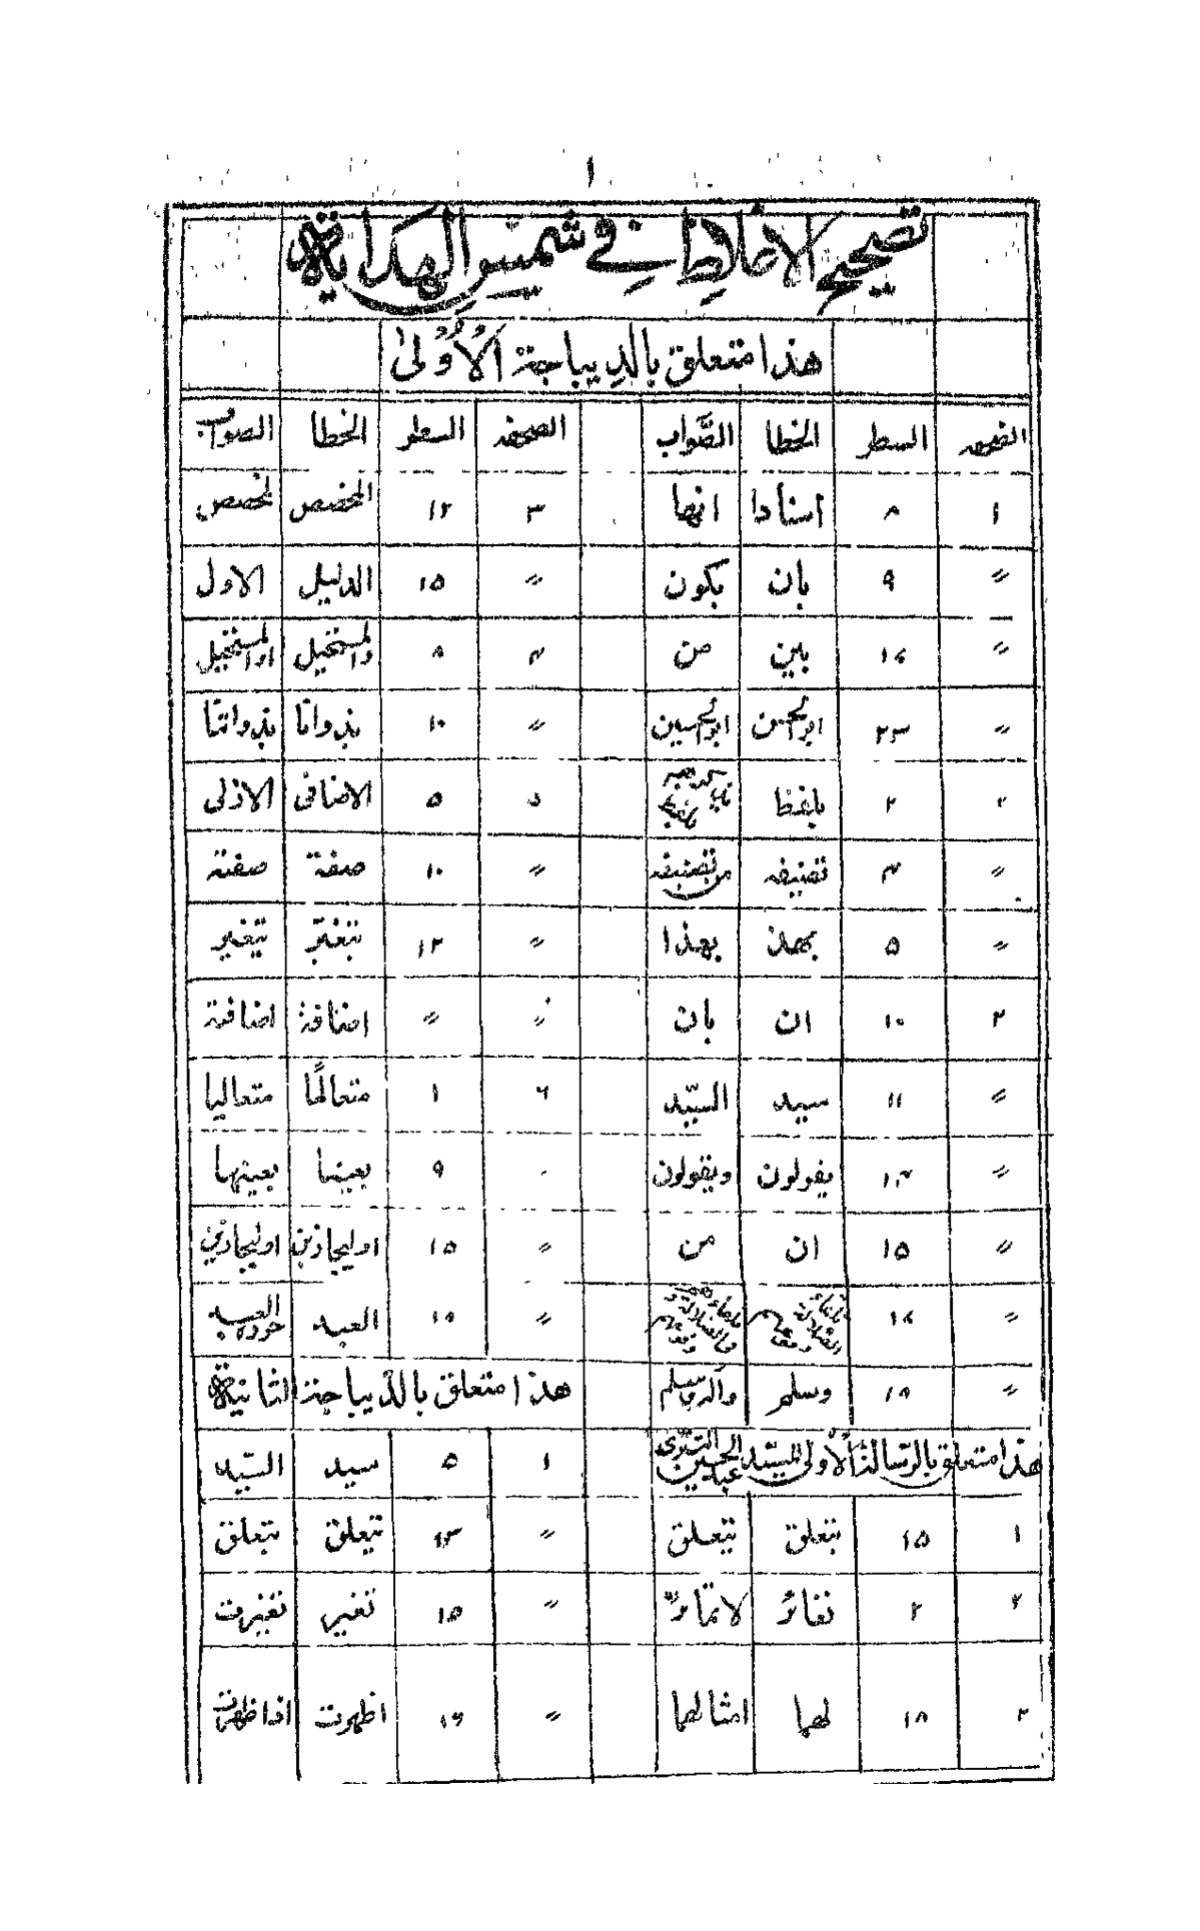 ١
تصحيح الاغلاط في شمس الهداية
هذا متعلق بالديباجة الأولى
الصحفه السطر الخطا الصواب الصحفه السطر الخطا الصواب
١ ٨ اسنادا انها ٣ ١٢ المخصص لمخصص
〃 ٩ بان بكون 〃 ١٥ الدليل الاول
〃 ١٤ بين من ٤ ٨ والمستحيل اوالمستحيل
〃 ٢٣ ابوالحسن ابوالحسين 〃 ١٠ بذواتا بذواتنا
٢ ٢ بلفظ ٥ ٥ الاضافى الاذلى
〃 ٤ تصنيفه من تصنيفه 〃 ١٠ صفة صفته
〃 ٥ بهذ بهذا 〃 ١٢ بتغير يتغير
٢ ١٠ ان بان 〃 〃 اضافة اضافته
〃 ١١ سيد السيّد ٦ ١ متعالها متعاليا
〃 ١٣ يقولون ويقولون ٩ بعينا بعينها
〃 ١٥ ان من 〃 ١٥
〃 ١٤ 〃 العبد العبد
〃 ١٨ وسلم وآله وسلم هذا متعلق بالديباجة الثانية
هذا متعلق بالرسالة الأولى للسيّد عبد الحسين التستري ١ ٥ سيد السيّد
١ ١٥ بتعلق يتعلق 〃 ١٣ يتعلق بتعلق
٢ ٢ 〃 ١٥ تغير تغيرت
٢ ١٨ لهما امثالهما 〃 ١٦ اظهرت اذا ظهرت